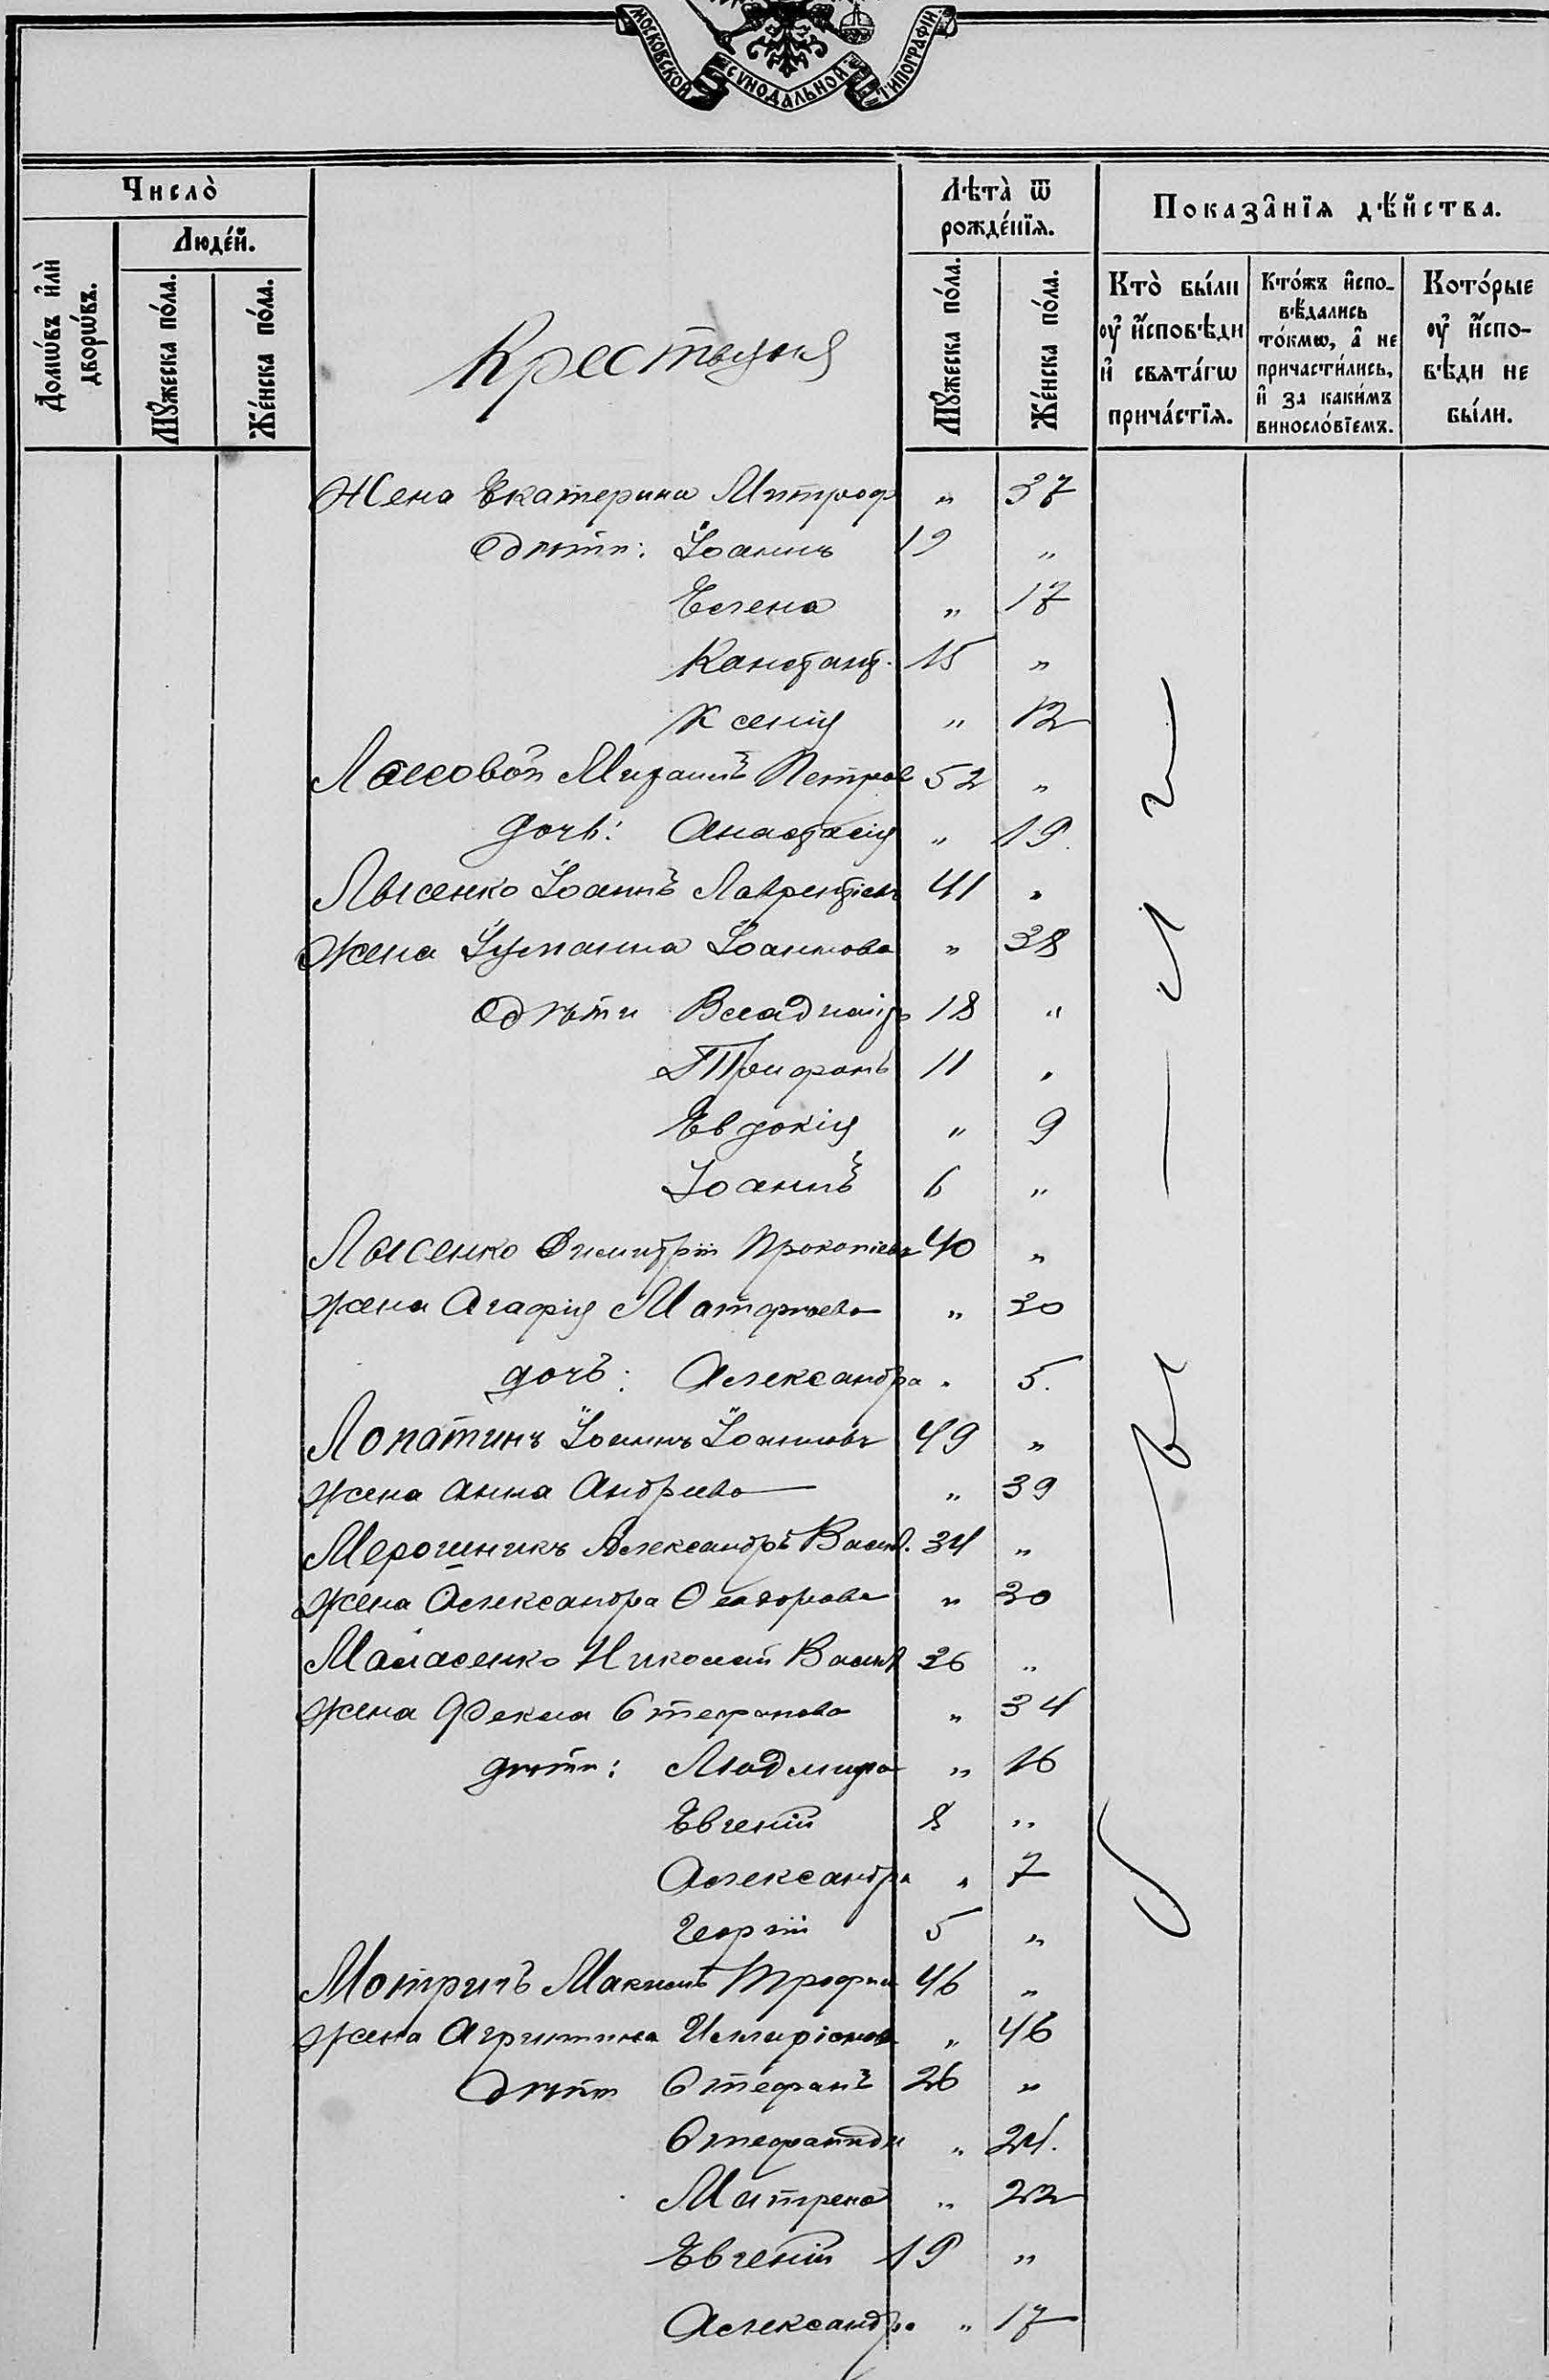 МОСКОВСКОЙ СѴНОДАЛЬНОЙ ТИПОГРАФІИ
Число̀
Люде́й.
Домѡ́въ и҆лѝ дворѡ́въ.
Мꙋ́жеска по́ла.
Же́нска по́ла.
Крестьяня
Лѣта̀ ѿ рожде́нїѧ.
Мꙋ́жеска по́ла.
Же́нска по́ла.
Показа̑нїѧ дѣ́йства.
Кто̀ бы́ли оу҆ и҆́сповѣди и҆ свѧта́гѡ прича́стїѧ.
Кто́жъ и҆спо-вѣ́дались то́кмѡ, а҆ не причасти́лись, и҆ за каки́мъ винословїемъ.
Кото́рые оу҆ и҆́спо-вѣди не бы́ли.
Жена Екатерина Митроф „ 37
Дѣти: Іоаннъ 19 „
Елена „ 17
Констант. 15 „
Ксенія „ 12
Михаилъ Петров 52 „
дочь: Анастасія „ 19.
Лысенко Іоаннъ Лаврентіевъ 41 „
жена Іоаннова „ 38
Дѣти Владимір 18 „
Трифонъ 11 „
Евдокія „ 9
Іоаннъ 6 „
Лысенко Димитрій Прокопіевъ 40 „
жена Агафія Матфѣева „ 30
дочъ: Александра „ 5.
Лопатинъ Іоаннъ Іоанновъ 49 „
жена Анна Андреева „ 39
Мерошникъ Александръ Васил. 34 „
жена Александра Феодорова „ 30
Николай Васил 36 „
жена Фекла Стефанова „ 34
дѣти: Людмира „ 16
Евгеній 8 „
Александра „ 7
Георгій 5 „
Мотричъ Максимъ Трофим 46 „
жена Агрипина Иларіонова „ 46
Дѣти Стефанъ 26 „
Стефанида „ 24.
Матрена „ 22
Евгеній 19 „
Александра „ 17
Б — ы — л и